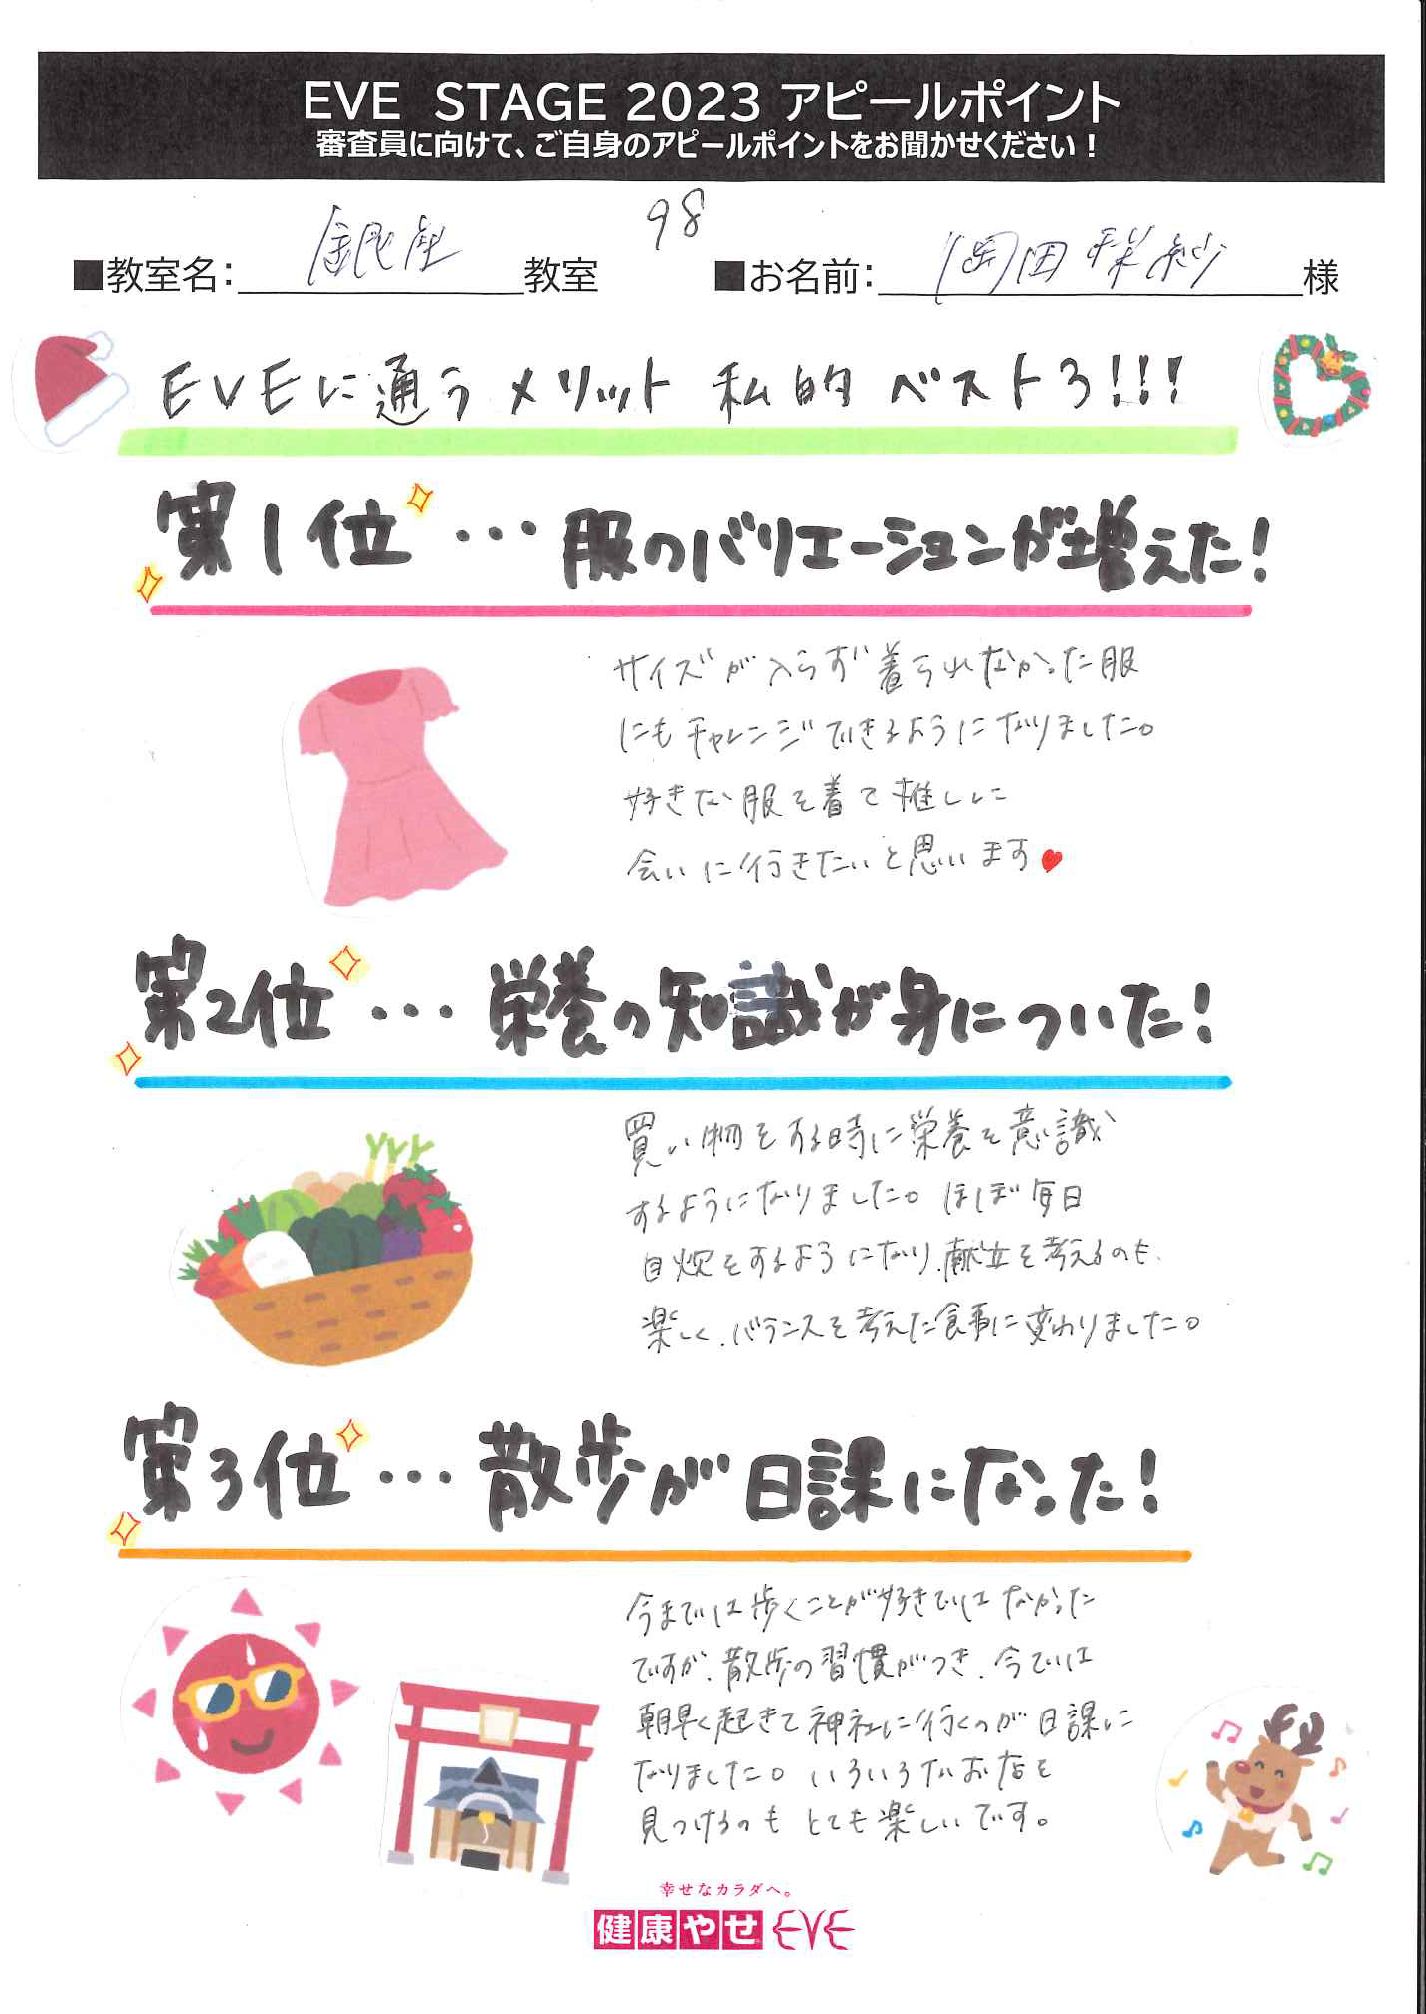 EVE STAGE 2023 アピールポイント
審査員に向けて、ご自身のアピールポイントをお聞かせください！
98
■教室名： 銀座 教室 ■お名前： 岡田梨紗 様
EVEに通うメリット 私的 ベスト3!!!
第1位 … 服のバリエーションが増えた！
サイズが入らず着られなかった服
にもチャレンジできるようになりました。
好きな服を着て推しに
会いに行きたいと思います♥
第2位 … 栄養の知識が身についた！
買い物をする時に栄養を意識
するようになりました。ほぼ毎日
自炊をするようになり、献立を考えるのも、
楽しく、バランスを考えた食事に変わりました。
第3位 … 散歩が日課になった！
今までは歩くことが好きではなかった
ですが、散歩の習慣がつき、今では
朝早く起きて神社に行くのが日課に
なりました。いろいろなお店を
見つけるのもとても楽しいです。
幸せなカラダへ。
健康やせ EVE